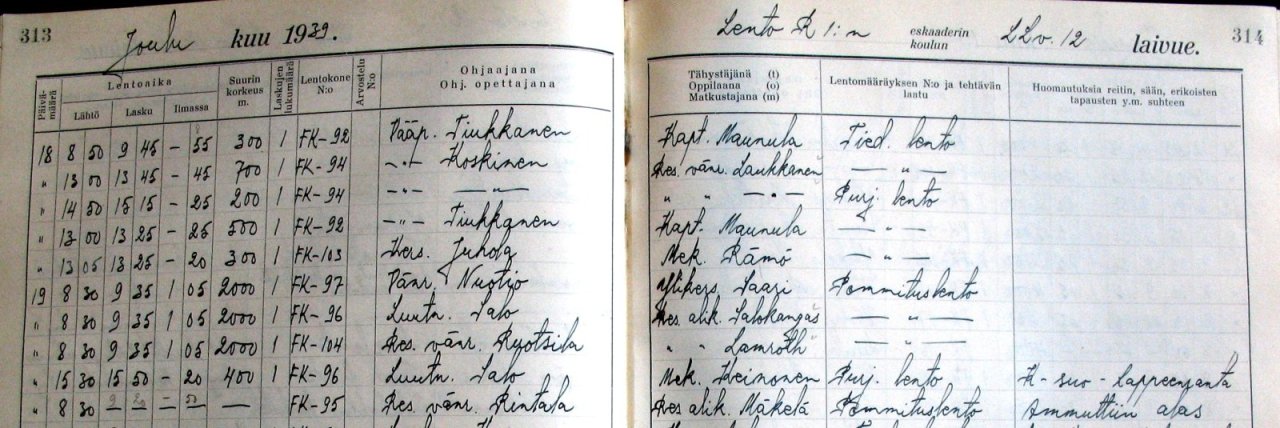 313 Joulu kuu 1939.
Päivämäärä Lentoaika Lähtö Lasku Ilmassa Suurin korkeus m. Laskujen lukumäärä Lentokone N:o Arvostelu N:o Ohjaajana Ohj. opettajana
18 8 50 9 45 – 55 300 1 FK-92 Vääp. Tiukkanen
" 13 00 13 45 – 45 700 1 FK-94 –"– Koskinen
" 14 50 15 15 – 25 200 1 FK-94 –"– —"—
" 13 00 13 25 – 25 500 1 FK-92 –"– Tiukkanen
" 13 05 13 25 – 20 300 1 FK-103 Kers. Juhola
19 8 30 9 35 1 05 2000 1 FK-97 Vänr. Nuotio
" 8 30 9 35 1 05 2000 1 FK-96 Luutn. Salo
" 8 30 9 35 1 05 2000 1 FK-104 Res. vänr. Ruotsila
" 15 30 15 50 – 20 400 1 FK-96 Luutn. Salo
" 8 30 — FK-95 Res. vänr. Rintala
Lento R 1:n eskaaderin koulun LLv. 12 laivue. 314
Tähystäjänä (t) Oppilaana (o) Matkustajana (m) Lentomääräyksen N:o ja tehtävän laatu Huomautuksia reitin, sään, erikoisten tapausten y.m. suhteen
Kapt. Maunula Tied. lento
Res. vänr. Laukkanen — " —
" " — " — Purj. lento
Kapt. Maunula — " —
Mek. Rämö — " —
Ylikers. Saari Pommituslento
Res. alik. Salokangas — " —
" " Lamroth — " —
Mek. Heinonen Purj. lento K-suo - Lappeenranta
Res alik. Mäkelä Pommituslento Ammuttiin alas